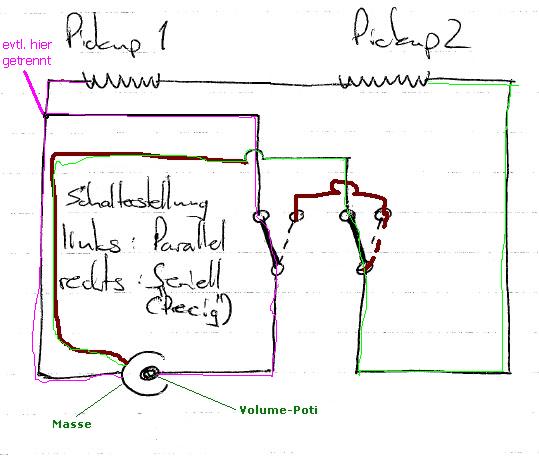 Pickup 1
Pickup 2
evtl. hier
getrennt
Schalterstellung
links: Parallel
rechts: Seriell
("Dreckig")
Volume-Poti
Masse